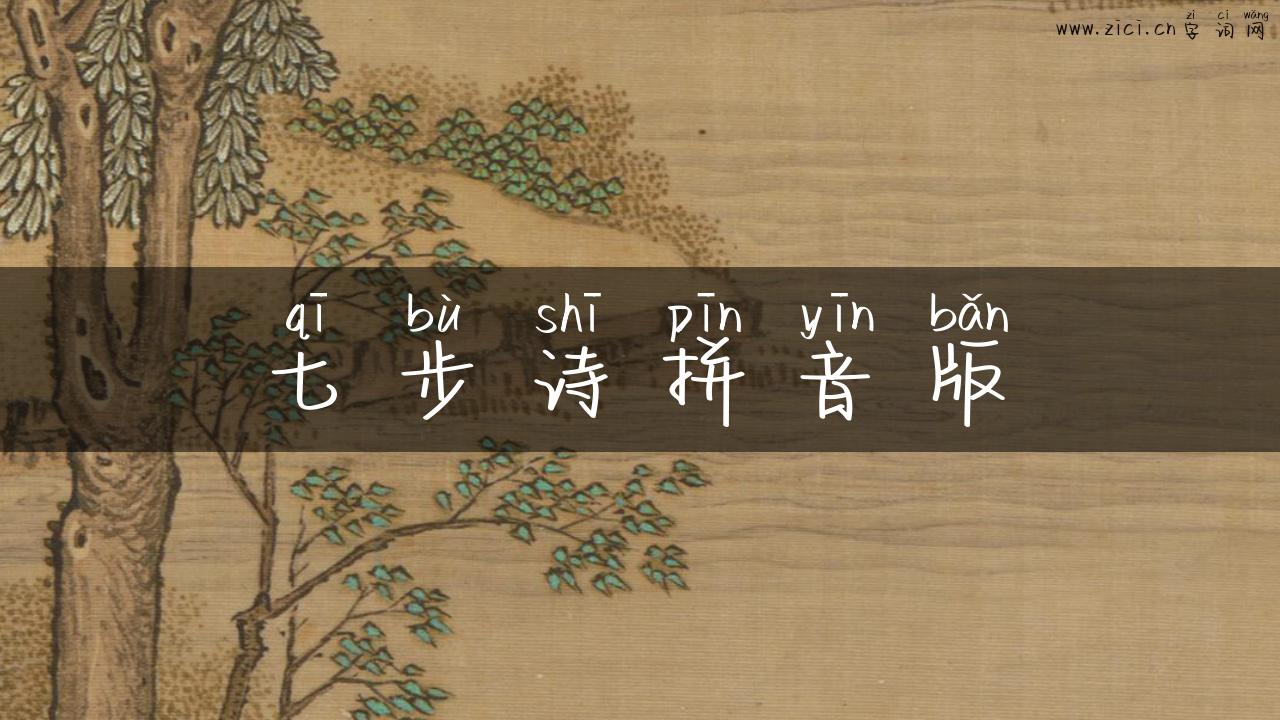 www.zici.cn zì cí wǎng
字词网
qī bù shī pīn yīn bǎn
七步诗拼音版